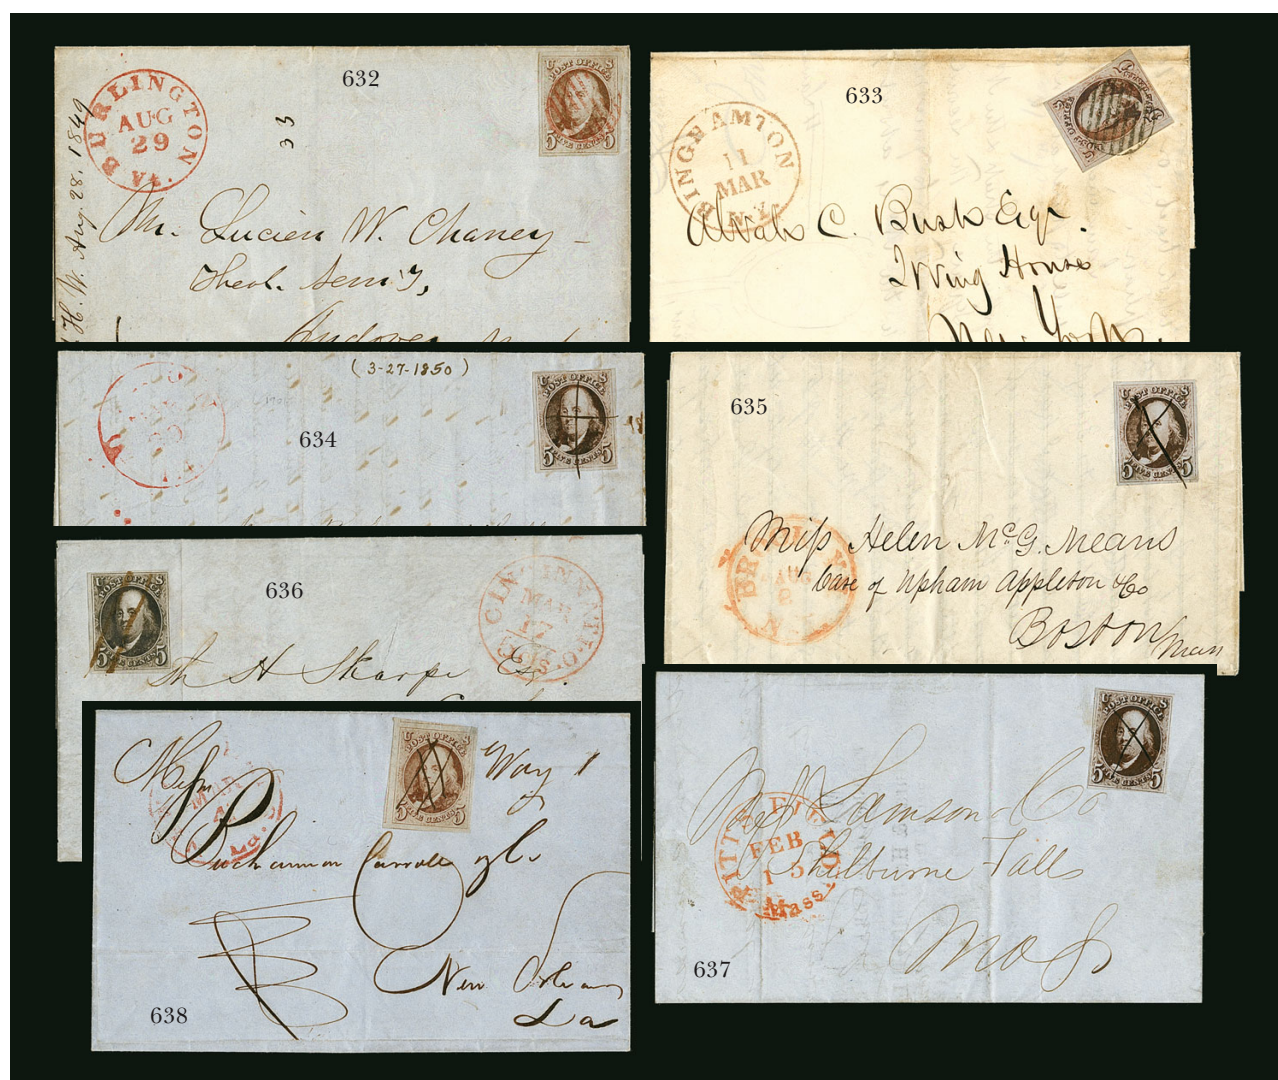 632
BURLINGTON
AUG
29
Vt.
H. W. Aug. 28, 1849
33
POST OFFICE
5 FIVE CENTS 5
Mr. Lucien W. Chaney
Theol. Sem'y,
Andover
633
BINGHAMTON
11
MAR
N.Y.
POST OFFICE
Alvah C. Bush Esqr.
Irving House
New York.
(3-27-1850)
634
U S
POST OFFICE
5 FIVE CENTS 5
635
U S
POST OFFICE
5 FIVE CENTS 5
Miss Helen McG. Means
Care of Upham Appleton & Co
Boston
Mass
AUG
636
U S
POST OFFICE
5 FIVE CENTS 5
CINCINNATI O.
MAR
17
5 cts
H Sharpe Esq.
638
U S
POST OFFICE
5 FIVE CENTS 5
Way 1
Mess
MAR
La.
Buchannon Carroll & Co
New Orleans
La
637
U S
POST OFFICE
5 FIVE CENTS 5
Mess Lamson & Co
Shelburne Falls
Mass
PITTSFIELD
FEB
15
Mass.